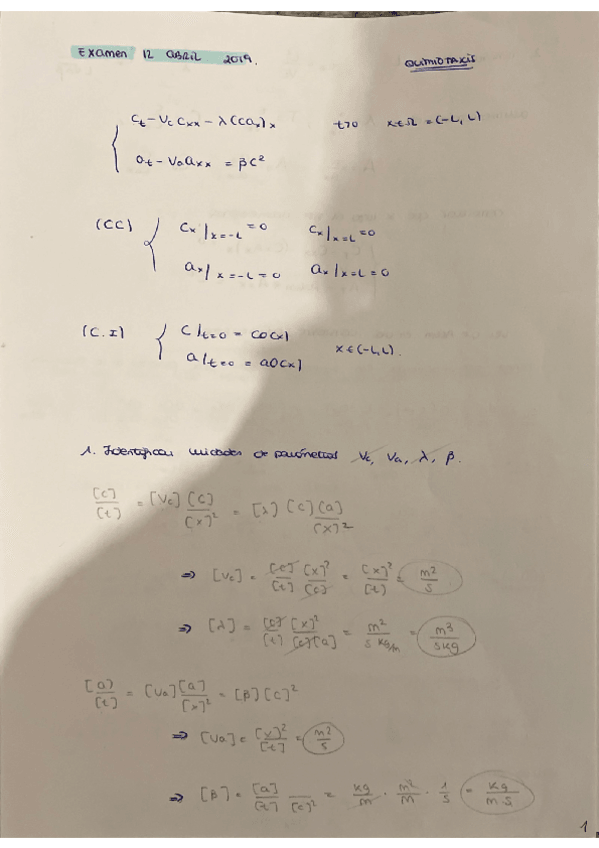 Examen 12 ABRIL 2019. QUIMIOTAXIS
Ct - Vc Cxx - λ(C ax)x t>0 x∈Ω = (-L, L)
at - Va axx = βC²
(CC) Cx|x=-L = 0 Cx|x=L = 0
ax|x=-L = 0 ax|x=L = 0
(C.I) C|t=0 = C0(x)
a|t=0 = a0(x) x∈(-L, L).
1. Identificar unidades de parámetros Vc, Va, λ, β.
[C]/[t] = [Vc] [C]/[x]² = [λ] [C][a]/[x]²
⇒ [Vc] = [C]/[t] [x]²/[C] = [x]²/[t] = m²/s
⇒ [λ] = [C]/[t] [x]²/[C][a] = m²/s kg/m = m³/s kg
[a]/[t] = [Va] [a]/[x]² = [β][C]²
⇒ [Va] = [x]²/[t] = m²/s
⇒ [β] = [a]/[t] /[C]² = kg/m · m²/M · 1/s = kg/m s
1